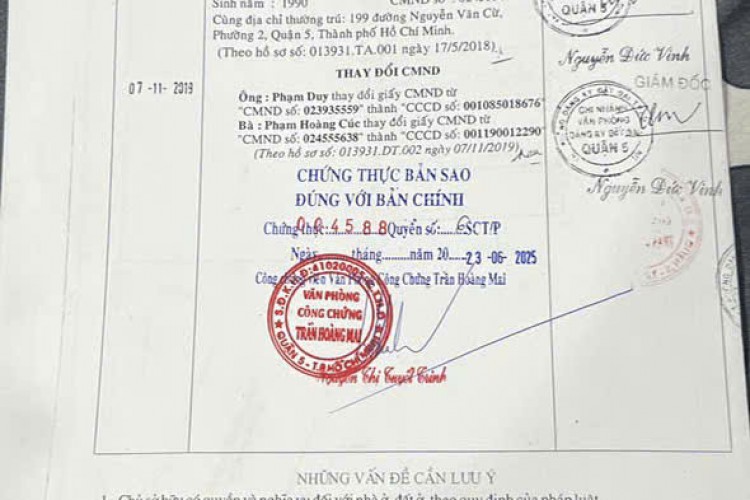 Sinh năm : 1990
Cùng địa chỉ thường trú: 199 đường Nguyễn Văn Cừ,
Phường 2, Quận 5, Thành phố Hồ Chí Minh.
(Theo hồ sơ số: 013931.TA.001 ngày 17/5/2018)
QUẬN 5
Nguyễn Đức Vinh
THAY ĐỔI CMND
07-11-2019
Ông : Phạm Duy thay đổi giấy CMND từ
"CMND số: 023935559" thành "CCCD số: 001085018676"
Bà : Phạm Hoàng Cúc thay đổi giấy CMND từ
"CMND số: 024555638" thành "CCCD số: 001190012290"
(Theo hồ sơ số: 013931.DT.002 ngày 07/11/2019)
GIÁM ĐỐC
CHI NHÁNH
VĂN PHÒNG
ĐĂNG KÝ ĐẤT ĐAI
QUẬN 5
Nguyễn Đức Vinh
CHỨNG THỰC BẢN SAO
ĐÚNG VỚI BẢN CHÍNH
Chứng thực: 004588 Quyển số:.....6SCT/P
Ngày..........tháng..........năm 20.....23-06-2025
Công chứng viên Văn Phòng Công Chứng Trần Hoàng Mai
VĂN PHÒNG
CÔNG CHỨNG
TRẦN HOÀNG MAI
QUẬN 5 - T.P HỒ CHÍ MINH
Nguyễn Thị Tuyết Trinh
NHỮNG VẤN ĐỀ CẦN LƯU Ý
1. Chủ sở hữu có quyền và nghĩa vụ đối với nhà ở, đất ở theo quy định của pháp luật